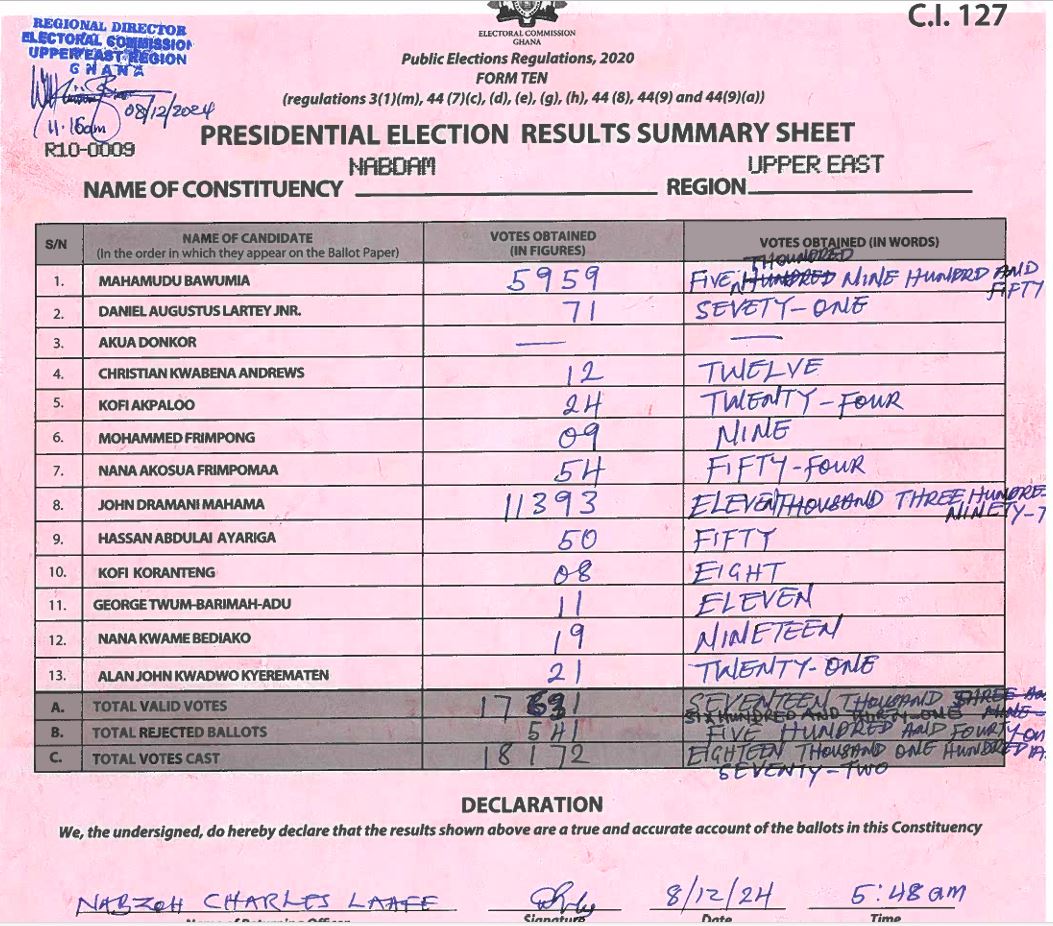 C.I. 127
REGIONAL DIRECTOR
ELECTORAL COMMISSION
UPPER EAST REGION
GHANA
08/12/2024
11.16am
R10-0009
ELECTORAL COMMISSION
GHANA
Public Elections Regulations, 2020
FORM TEN
(regulations 3(1)(m), 44 (7)(c), (d), (e), (g), (h), 44 (8), 44(9) and 44(9)(a))
PRESIDENTIAL ELECTION RESULTS SUMMARY SHEET
NAME OF CONSTITUENCY NABDAM REGION UPPER EAST
S/N NAME OF CANDIDATE (In the order in which they appear on the Ballot Paper) VOTES OBTAINED (IN FIGURES) VOTES OBTAINED (IN WORDS)
1. MAHAMUDU BAWUMIA 5959 FIVE HUNDRED THOUNDRED NINE HUNDRD AND FIFTY
2. DANIEL AUGUSTUS LARTEY JNR. 71 SEVETY-ONE
3. AKUA DONKOR — —
4. CHRISTIAN KWABENA ANDREWS 12 TWELVE
5. KOFI AKPALOO 24 TWENTY-FOUR
6. MOHAMMED FRIMPONG 09 NINE
7. NANA AKOSUA FRIMPOMAA 54 FIFTY-FOUR
8. JOHN DRAMANI MAHAMA 11393 ELEVEN THOUSAND THREE HUNDRE NINETY-T
9. HASSAN ABDULAI AYARIGA 50 FIFTY
10. KOFI KORANTENG 08 EIGHT
11. GEORGE TWUM-BARIMAH-ADU 11 ELEVEN
12. NANA KWAME BEDIAKO 19 NINETEEN
13. ALAN JOHN KWADWO KYEREMATEN 21 TWENTY-ONE
A. TOTAL VALID VOTES 17631 SEVENTEEN THOUSAND THREE
SIX HUNDRED AND THIRTY-ONE NINE-
B. TOTAL REJECTED BALLOTS 541 FIVE HUNDRED AND FOURTY-ON
C. TOTAL VOTES CAST 18172 EIGHTEEN THOUSAND ONE HUNDRED
SEVENTY-TWO
DECLARATION
We, the undersigned, do hereby declare that the results shown above are a true and accurate account of the ballots in this Constituency
NABZOH CHARLES LAAFE 8/12/24 5:48am
Name of Returning Officer Signature Date Time